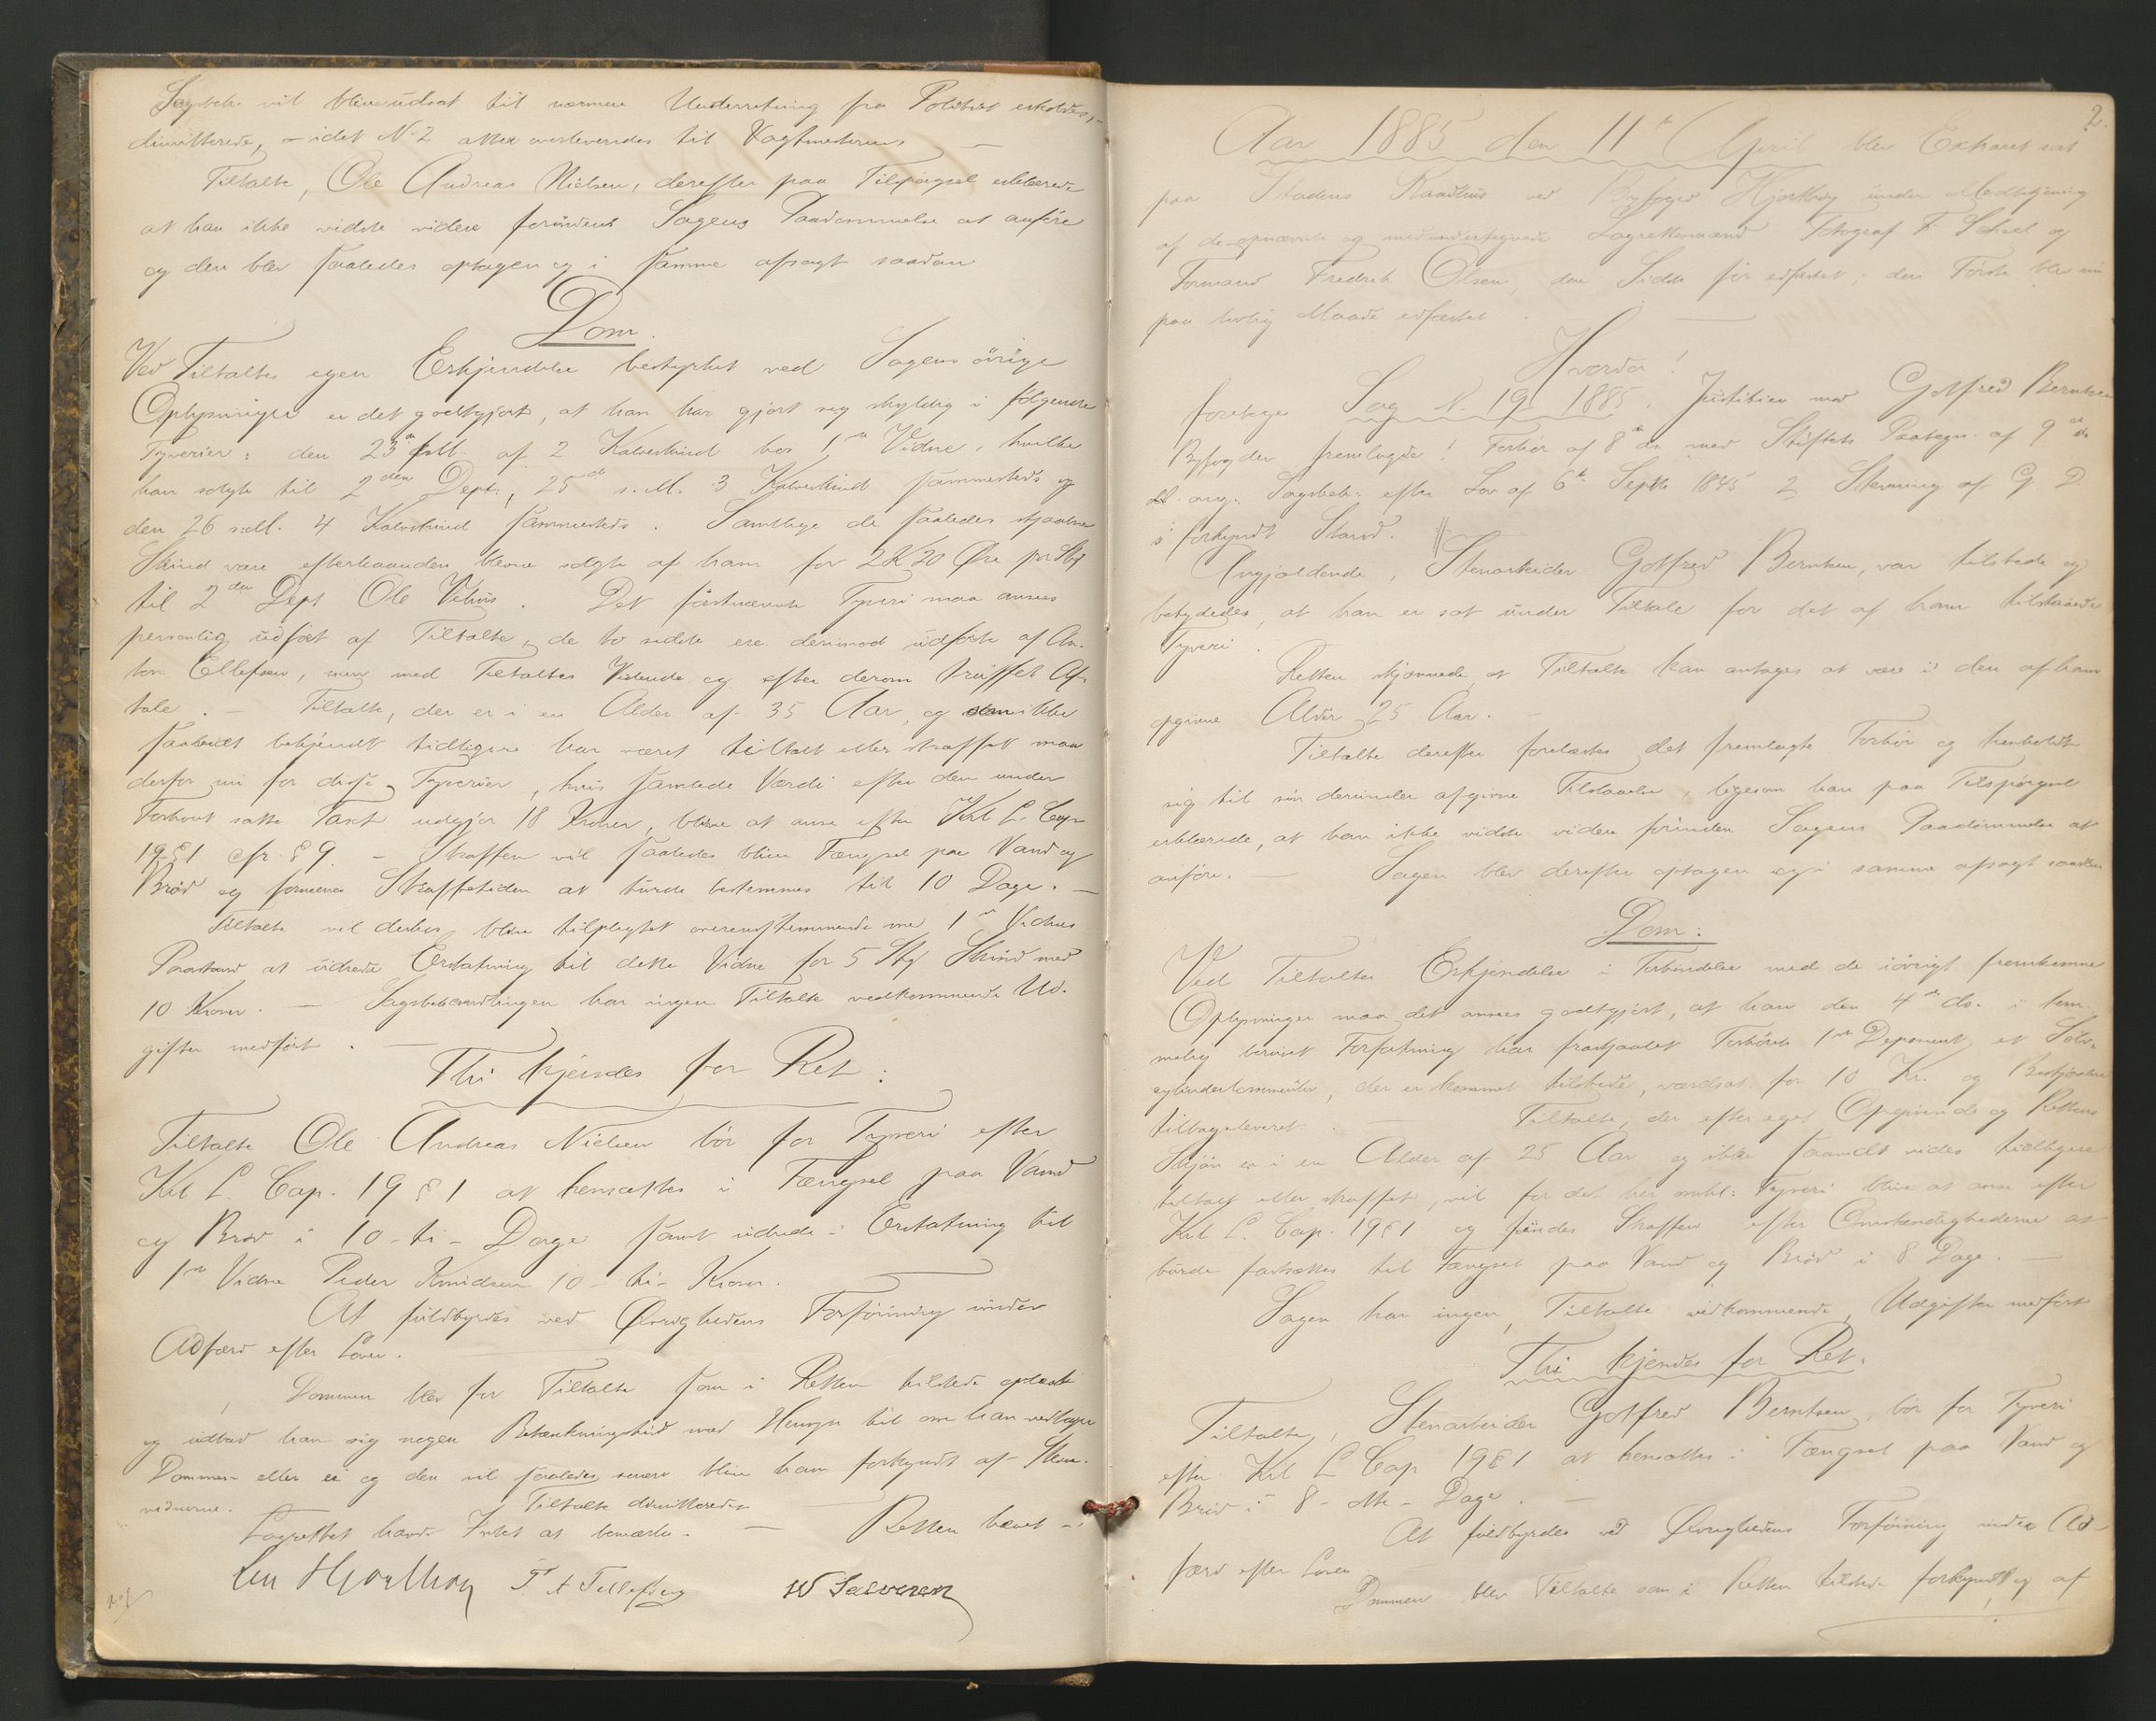 vil blive udsat til nærmere Underretning fra Politiet erholdes,-
dimitterede, - idet N. 2 atter overleveredes til Vagtmesteren -
Tiltalte, Ole Andreas Nielsen, derefter paa Tilspørgsel erklærede
at han ikke vidste videre forinden Sagens Paadømmelse at anføre
og den blev saaledes optagen og i samme afsagt saadan
Dom.
Ved Tiltaltes egen Erkjendelse bestyrket ved Sagens øvrige
Oplysninger er det godtgjort, at han har gjort sig skyldig i følgende
Tyverier: den 23de af 2 Kalveskind hos 1ste Vidne, hvilke
han solgte til 2den Dept:, 25de s. M. 3 Kalveskind sammesteds og
den 26 s.M. 4 Kalveskind sammesteds. Samtlige de saaledes stjaalne
Skind vare efterhaanden blevne solgte af ham for 2 K 20 Øre pr Stk
til 2den Dept Ole . Det førstnævnte Tyveri maa ansees
personlig udført af Tiltalte, de to sidste ere derimod udførte af An-
ton Ellefsen, men med Tiltaltes Vidende og efter derom truffet Af-
tale. - Tiltalte, der er i en Alder af 35 Aar, og ikke
saavidt bekjendt tidligere har været tiltalt eller straffet maa
derfor nu for disse Tyverier, hvis samlede Værdi efter den under
Forhøret satte Taxt udgjør 18 Kroner, blive at anse efter Krl L. Cap
19 § 1 cfr. § 9. - Straffen vil saaledes blive Fængsel paa Vand og
Brød og formenes Straffetiden at burde bestemmes til 10 Dage. -
Tiltalte vil derhos blive tilpligtet overensstemmende med 1ste Vidnes
Paastand at udrede Erstatning til dette Vidne for 5 Stk Skind med
10 Kroner. - Sagsbehandlingen har ingen Tiltalte vedkommende Ud-
gifter medført. -
Thi kjendes for Ret:
Tiltalte Ole Andreas Nielsen bør for Tyveri efter
Krl L. Cap. 19 § 1 at hensættes i Fængsel paa Vand
og Brød i 10 - ti - Dage samt udrede i Erstatning til
1ste Vidne Peder Knudsen 10 - ti - Kroner.
At fuldbyrdes ved Øvrighedens Forføining under
Adfærd efter Loven.
Dommen blev for Tiltalte som i Retten tilstede oplæst
og udbad han sig nogen Betænkningstid med Hensyn til om han vedtager
Dommen eller ei og den vil saaledes senere blive ham forkyndt af Stevne-
vidnerne. Tiltalte dimitteredes
Lagrettet havde Intet at bemærke. - Retten hævet -
Hjorthøy T. A Tellefsen W Salvesen
2.
Aar 1885 den 11te April blev Extraret sat
paa Stadens Raadhus ved Byfoged Hjorthøy under Medbetjening
af de opnævnte og medundertegnede Lagrettesmænd Fotograf F. og
Formand Fredrik Olsen, den Sidste før edfæstet, den Første blev nu
paa lovlig Maade edfæstet.
Hvorda!
foretoges Sag N. 19 1885. Justitien mod Gotfred Berntsen
Byfogden fremlagde: Forhør af 8de ds. med Stiftets Paategn. af 9de ds
ang. Sagsbeh: efter Lov af 6te Septb 1845 2 Stevning af G. D.
i forkyndt Stand.
Angjældende, Stenarbeider Gotfred Berntsen, var tilstede og
betydedes, at han er sat under Tiltale for det af ham tilstaaede
Tyveri.
Retten skjønnede at Tiltalte kan antages at være i den af ham
opgivne Alder 25 Aar. -
Tiltalte derefter forelæstes det fremlagte Forhør og henholdt
sig til sin derunder afgivne Tilstaaelse, ligesom han paa Tilspørgsel
erklærede, at han ikke vidste videre forinden Sagens Paadømmelse at
anføre. - Sagen blev derefter optagen og i samme afsagt saadan
Dom:
Ved Tiltaltes Erkjendelse i Forbindelse med de iøvrigt fremkomne
Oplysninger maa det ansees godtgjort, at han den 4de ds. i tem-
melig beruset Forfatning har frastjaalet Forhørets 1ste Deponent et Sølv-
cylinderlommeuhr, der er kommet tilstede, værdsat for 10 Kr. og Bestjaalne
tilbageleveret. - Tiltalte, der efter eget Opgivende og Rettens
Skjøn er i en Alder af 25 Aar og ikke saavidt vides tidligere
tiltalt eller straffet, vil for det her omhl: Tyveri blive at anse efter
Krl L. Cap. 19 § 1 og findes Straffen efter Omstændighederne at
burde fastsættes til Fængsel paa Vand og Brød i 8 Dage. -
Sagen har ingen, Tiltalte vedkommende, Udgifter medført
Thi kjendes for Ret:
Tiltalte, Stenarbeider Gotfred Berntsen, bør for Tyveri
efter Krl L Cap 19 § 1 at hensættes i Fængsel paa Vand og
Brød i 8 - otte - Dage. -
At fuldbyrdes ved Øvrighedens Forføining under Ad-
færd efter Loven
Dommen blev Tiltalte som i Retten tilstede forkyndt og af